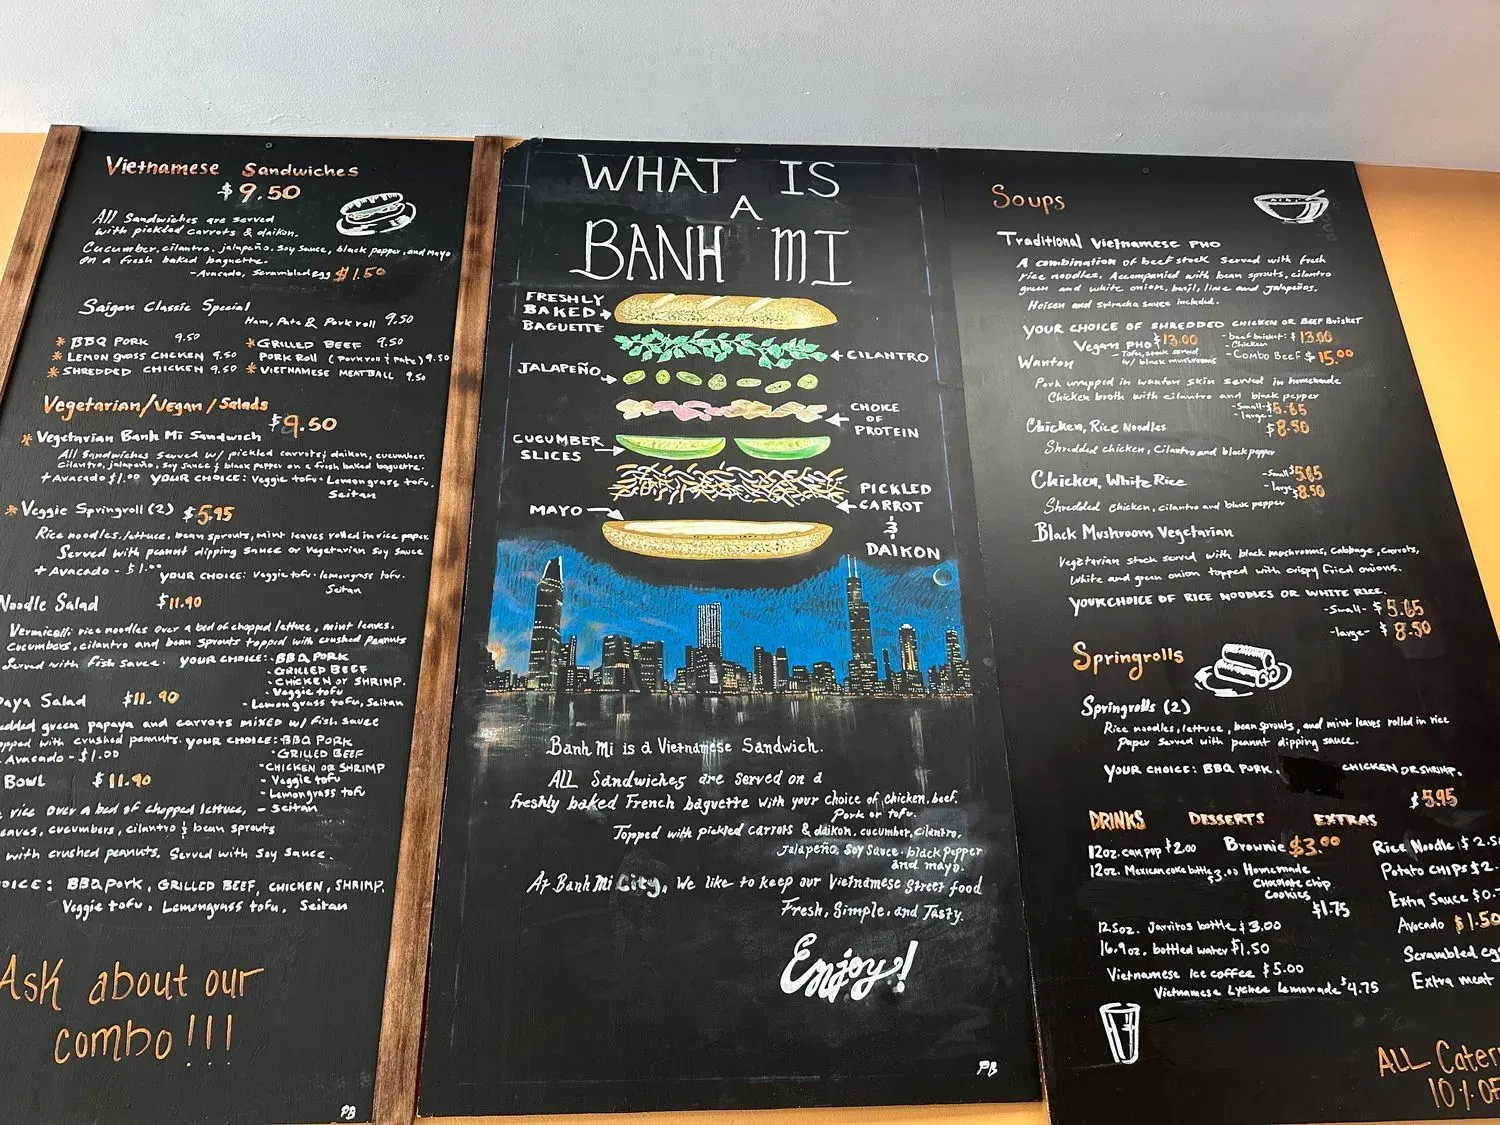 Vietnamese Sandwiches
$9.50
All Sandwiches are served
with pickled carrots & daikon.
Cucumber, cilantro, jalapeño, soy sauce, black pepper, and mayo
on a fresh baked baguette.
-Avacado, Scrambled egg $1.50
Saigon Classic Special
Ham, Pate & Pork roll 9.50
* BBQ PORK 9.50
* LEMON grass CHICKEN 9.50
* SHREDDED CHICKEN 9.50
* GRILLED BEEF 9.50
PORK Roll (Pork roll & Pate) 9.50
* VIETNAMESE MEATBALL 9.50
Vegetarian/Vegan/Salads
$9.50
* Vegetarian Banh Mi Sandwich
All Sandwiches Served w/ pickled carrots & daikon, cucumber,
cilantro, jalapeño, soy sauce & black pepper on a fresh baked baguette.
+ Avacado $1.00 YOUR CHOICE: Veggie tofu · Lemongrass tofu ·
Seitan
* Veggie Springroll (2) $5.95
Rice noodles, lettuce, bean sprouts, mint leaves rolled in rice paper.
Served with peanut dipping sauce or Vegetarian Soy sauce
+ Avacado - $1.00 YOUR CHOICE: Veggie tofu · lemongrass tofu ·
Seitan
Noodle Salad $11.90
Vermicelli rice noodles over a bed of chopped lettuce, mint leaves,
Cucumbers, cilantro and bean sprouts topped with crushed Peanuts
Served with Fish sauce. YOUR CHOICE: · BBQ PORK
- GRILLED BEEF
- CHICKEN or SHRIMP.
- Veggie tofu
- Lemongrass tofu, Seitan
aya Salad $11.90
edded green papaya and carrots mixed w/ fish sauce
opped with crushed peanuts. YOUR CHOICE: · BBQ PORK
Avacado - $1.00
· GRILLED BEEF
· CHICKEN OR SHRIMP
- Veggie tofu
- Lemongrass tofu
- Seitan
BOWL $11.90
rice over a bed of chopped lettuce,
eaves, cucumbers, cilantro & bean sprouts
with crushed peanuts. Served with Soy Sauce.
OICE: BBQ PORK, GRILLED BEEF, CHICKEN, SHRIMP,
Veggie tofu, Lemongrass tofu, Seitan
Ask about our
combo!!!
PB
WHAT IS
A
BANH MI
FRESHLY
BAKED
BAGUETTE
CILANTRO
JALAPEÑO
CHOICE
OF
PROTEIN
CUCUMBER
SLICES
PICKLED
CARROT
&
DAIKON
MAYO
Banh Mi is a Vietnamese Sandwich.
ALL Sandwiches are served on a
freshly baked French baguette with your choice of chicken, beef,
Pork or tofu.
Topped with pickled carrots & daikon, cucumber, cilantro,
Jalapeño, soy sauce, black pepper
and mayo.
At Banh Mi City, We like to keep our Vietnamese Street food
Fresh, Simple, and Tasty.
Enjoy!
PB
Soups
Traditional Vietnamese PHO
A combination of beef stock served with fresh
rice noodles. Accompanied with bean sprouts, cilantro
green and white onion, basil, lime and jalapeños.
Hoisen and sriracha sauce included.
YOUR CHOICE OF SHREDDED CHICKEN OR BEEF BRISKET
Vegan PHO $13.00
-Tofu, stock served
w/ black mushrooms
-beef brisket: $13.00
-Chicken
-Combo Beef $15.00
Wanton
Pork wrapped in wanton skin served in homemade
Chicken broth with cilantro and black pepper
-Small- $5.65
-large- $8.50
Chicken, Rice Noodles
Shredded chicken, Cilantro and black pepper
Chicken, White Rice
-Small $5.65
-large $8.50
Shredded Chicken, cilantro and black pepper
Black Mushroom Vegetarian
Vegetarian stock served with black mushrooms, cabbage, carrots,
White and green onion topped with crispy fried onions.
YOUR CHOICE OF RICE NOODLES OR WHITE RICE.
-Small- $5.65
-large- $8.50
Springrolls
Springrolls (2)
Rice noodles, lettuce, bean sprouts, and mint leaves rolled in rice
Paper served with peanut dipping sauce.
YOUR CHOICE: BBQ PORK, CHICKEN OR SHRIMP.
$5.95
DRINKS DESSERTS EXTRAS
12oz. can pop $2.00
12oz. Mexican coke bottle $3.00
12.5oz. Jarritos bottle $3.00
16.9oz. bottled water $1.50
Vietnamese Ice coffee $5.00
Vietnamese Lychee Lemonade $4.75
Brownie $3.00
Homemade
Chocolate chip
Cookies
$1.75
Rice Noodle $2.5
Potato CHIPS $2.
Extra Sauce $0.7
Avocado $1.50
Scrambled eg
Extra meat
ALL Cater
10% OF